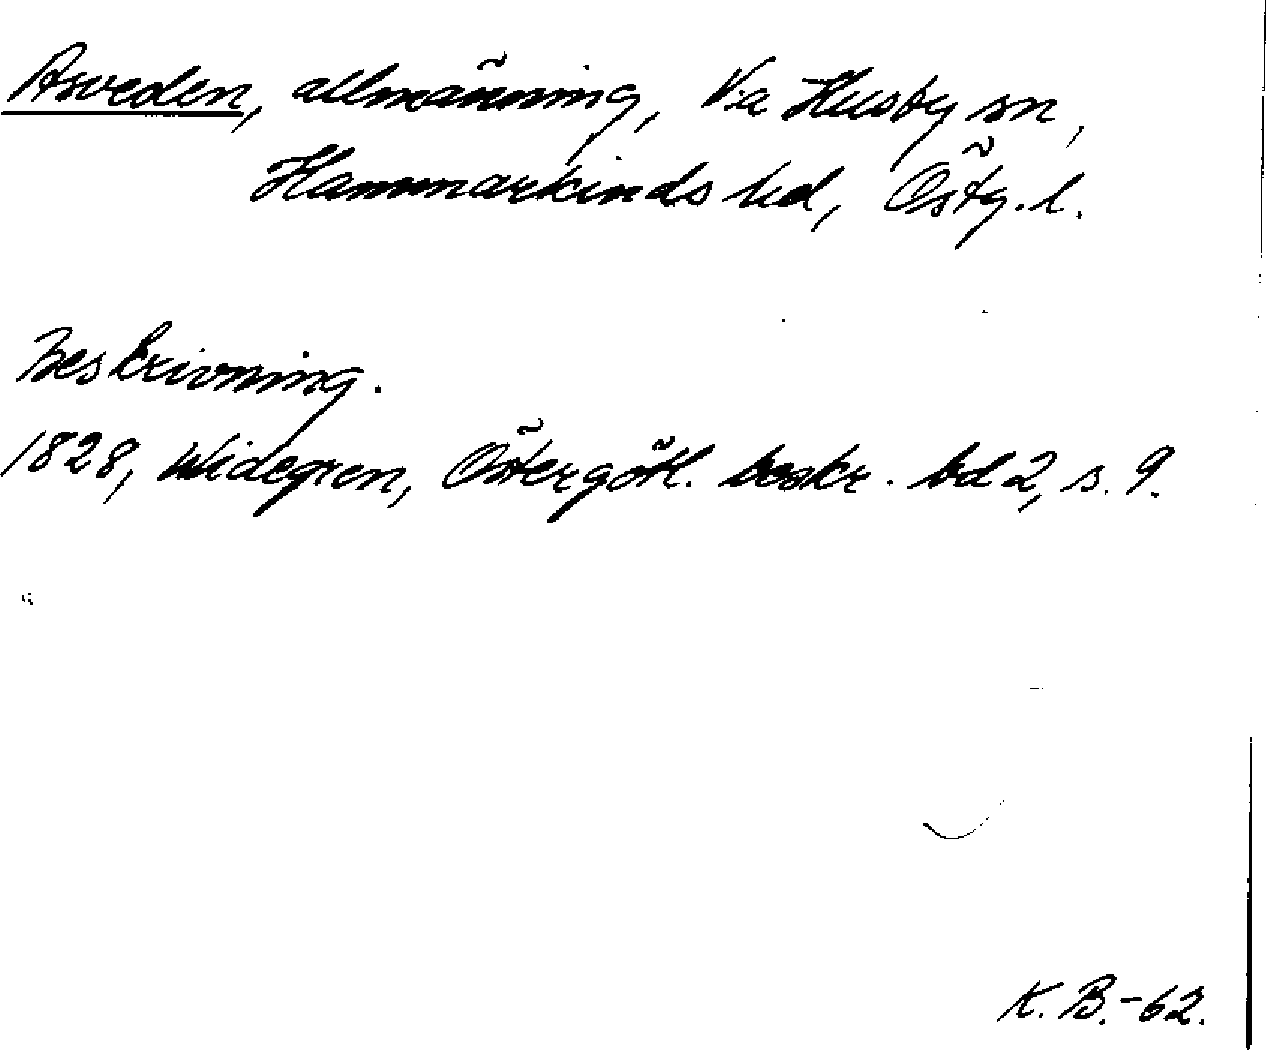 Asveden, allmänning, V:a Husby sn,
Hammarkinds hd, Östg. l.
Beskrivning.
1828, Widegren, Östergötl. beskr. bd 2, s. 9.
K. B.-62.